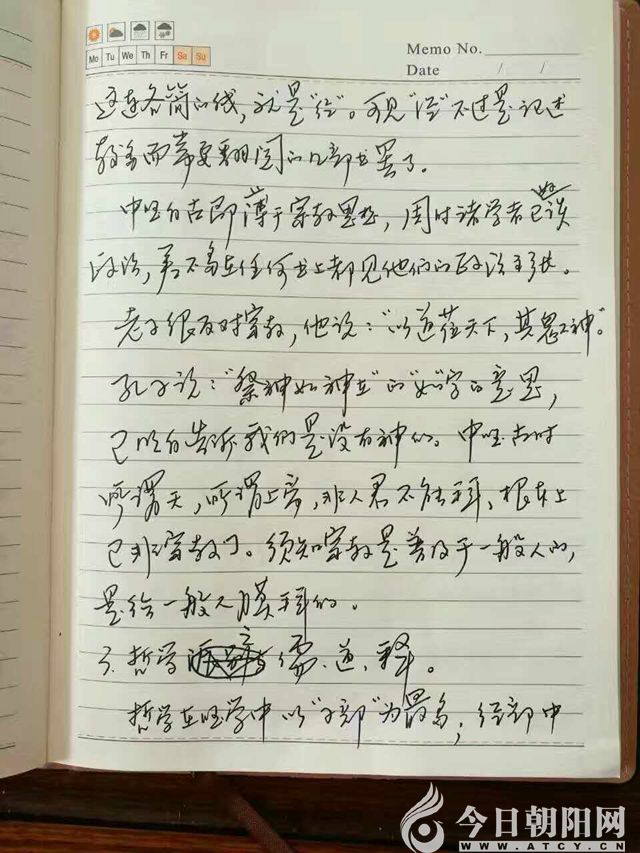 Mo Tu We Th Fr Sa Su
Memo No.
Date / /
这连各简的线，就是“经”。可见“经”不过是记述
较多而常要翻阅的几部书罢了。
中国自古即薄于宗教思想，周时诸学者已好谈
政治，差不多在任何书上都见他们的政治主张。
老子很反对宗教，他说：“以道莅天下，其鬼不神”。
孔子说：“祭神如神在”的“如”字的意思，
已明白告诉我们是没有神的。中国古时
所谓天，所谓上帝，非人君不能拜，根本上
已非宗教了。须知宗教是普及于一般人的，
是给一般人膜拜的。
3. 哲学 儒、道、释。
哲学在国学中以“子部”为最多，经部中
今日朝阳网
WWW.ATCY.CN